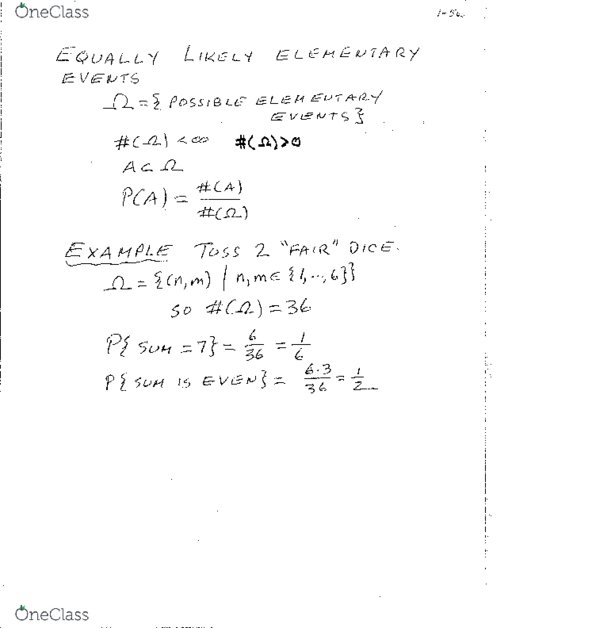 OneClass
EQUALLY LIKELY ELEMENTARY
EVENTS
Ω = { POSSIBLE ELEMENTARY
EVENTS }
#(Ω) < ∞ #(Ω) > 0
A ⊂ Ω
P(A) = #(A) / #(Ω)
EXAMPLE TOSS 2 "FAIR" DICE.
Ω = {(n,m) | n,m ∈ {1,...,6}}
SO #(Ω) = 36
P{ SUM = 7} = 6/36 = 1/6
P{ SUM IS EVEN} = 6·3/36 = 1/2
OneClass